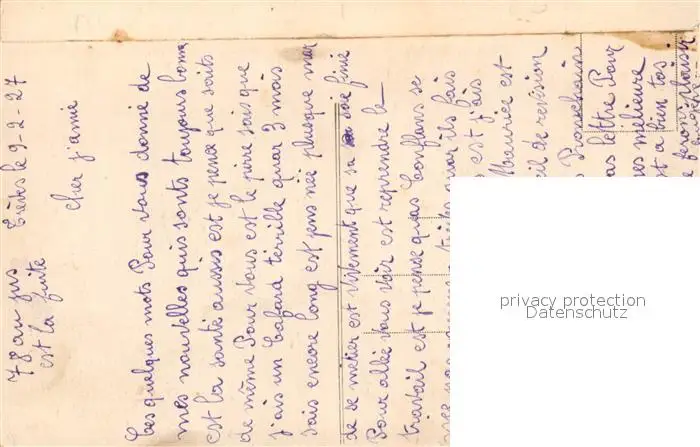 78 au jus
est la fuite
Trèves le 9-2-27
Cher j'amie
Ces quelques mots Pour vous donné de
mes nouvelles qui sonts toujours bonne
est la santé aussis est je pence que soits
de même Pour vous est le pirre sais que
j'ais un Cafard terrible quar 3 mois
sais encore long est jens née plusque mar
de se metier est vivement que sa soie finie
Pour allée vous voir est reprendre le
travail est je pense quas Conflans se
quar ils fais
est j'ais
Maurice est
de revision
Prochain
lettre Pour
milieure
est a bien tos
privacy protection
Datenschutz